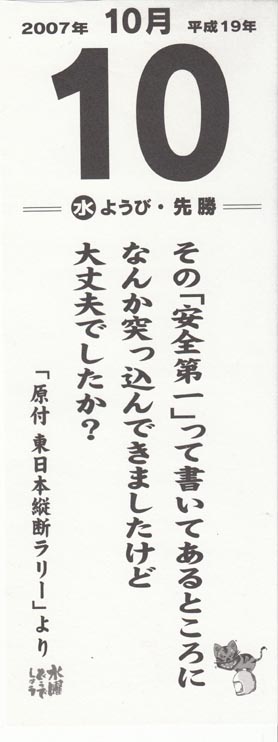 2007年 10月 平成19年
10
水 ようび・先勝
その「安全第一」って書いてあるところに
なんか突っ込んできましたけど
大丈夫でしたか？
「原付 東日本縦断ラリー」より
水曜どうでしょう